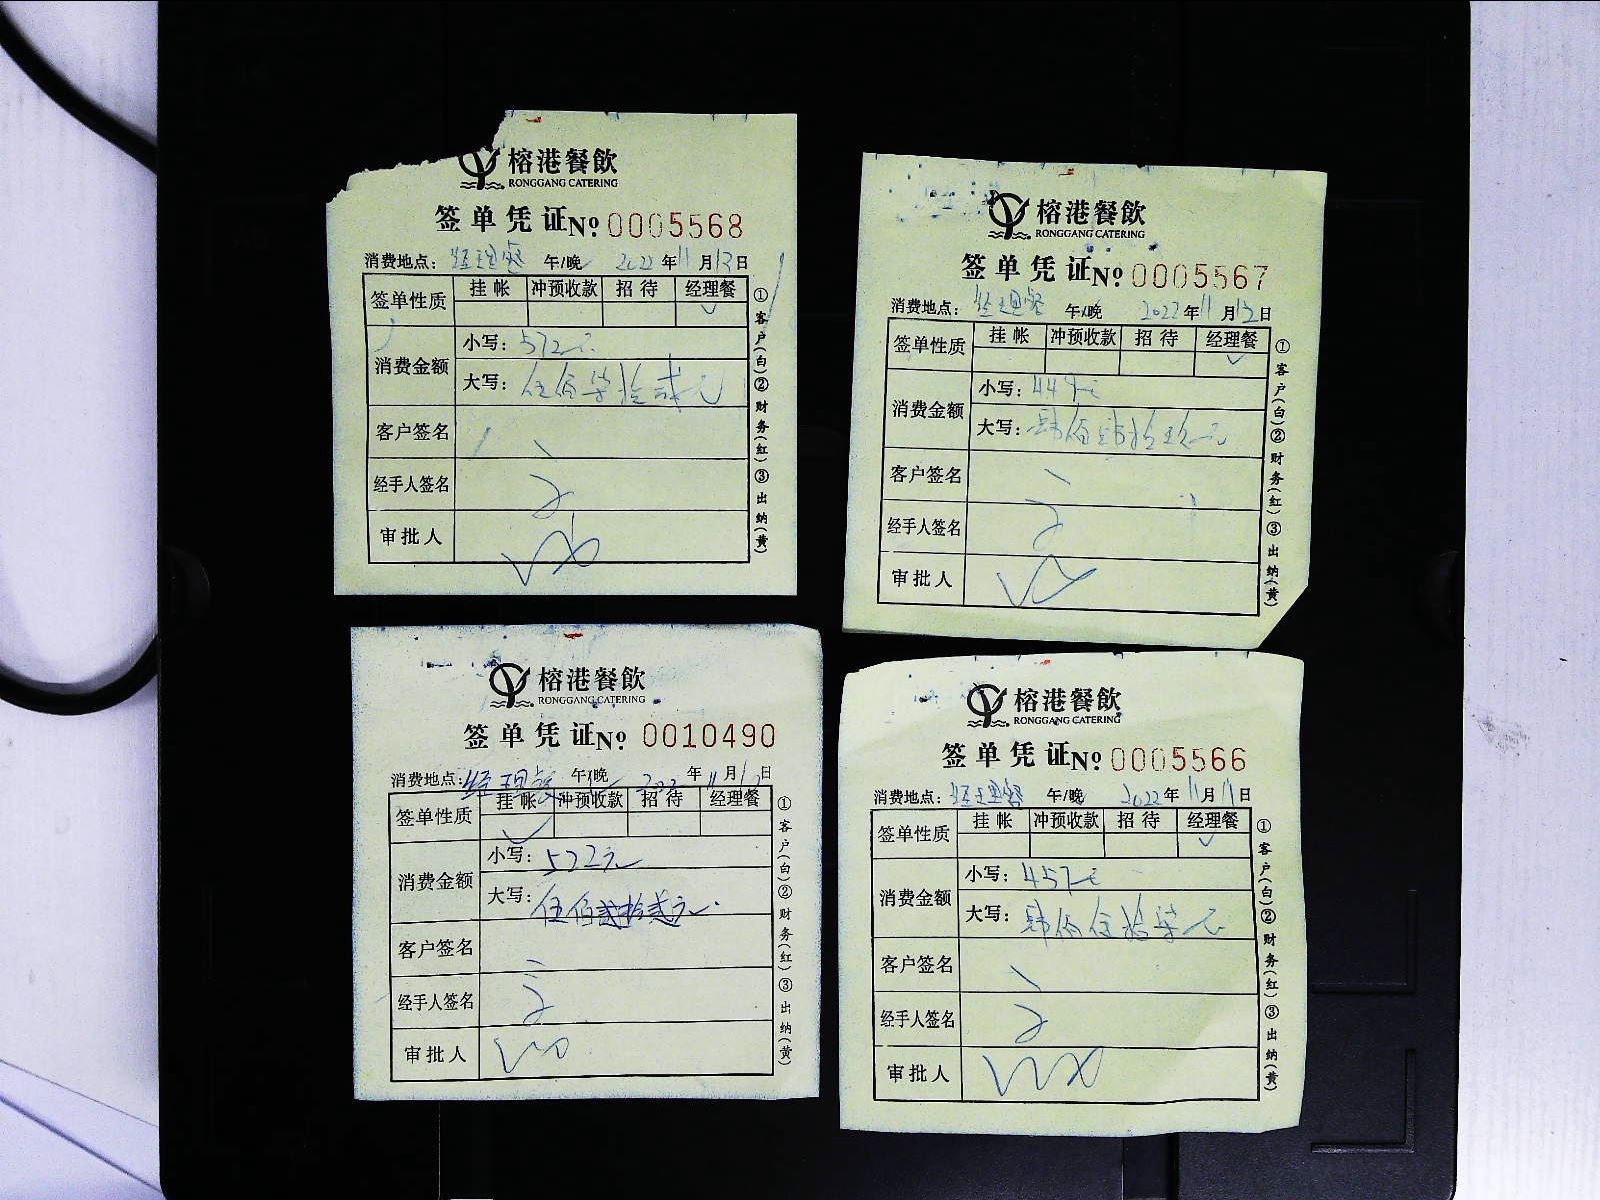 榕港餐飲
RONGGANG CATERING
签单凭证 No 0005568
消费地点：经理餐 午/晚 2022年11月12日
签单性质 挂帐 冲预收款 招待 经理餐
消费金额 小写：572元
大写：伍佰柒拾贰元
客户签名
经手人签名
审批人
①客户(白)②财务(红)③出纳(黄)
榕港餐飲
RONGGANG CATERING
签单凭证 No 0005567
消费地点：经理餐 午/晚 2022年11月12日
签单性质 挂帐 冲预收款 招待 经理餐
消费金额 小写：449元
大写：肆佰肆拾玖元
客户签名
经手人签名
审批人
①客户(白)②财务(红)③出纳(黄)
榕港餐飲
RONGGANG CATERING
签单凭证 No 0010490
消费地点：经理餐 午/晚 2022年11月日
签单性质 挂帐 冲预收款 招待 经理餐
消费金额 小写：522元
大写：伍佰贰拾贰元
客户签名
经手人签名
审批人
①客户(白)②财务(红)③出纳(黄)
榕港餐飲
RONGGANG CATERING
签单凭证 No 0005566
消费地点：经理餐 午/晚 2022年11月11日
签单性质 挂帐 冲预收款 招待 经理餐
消费金额 小写：457元
大写：肆佰伍拾柒元
客户签名
经手人签名
审批人
①客户(白)②财务(红)③出纳(黄)